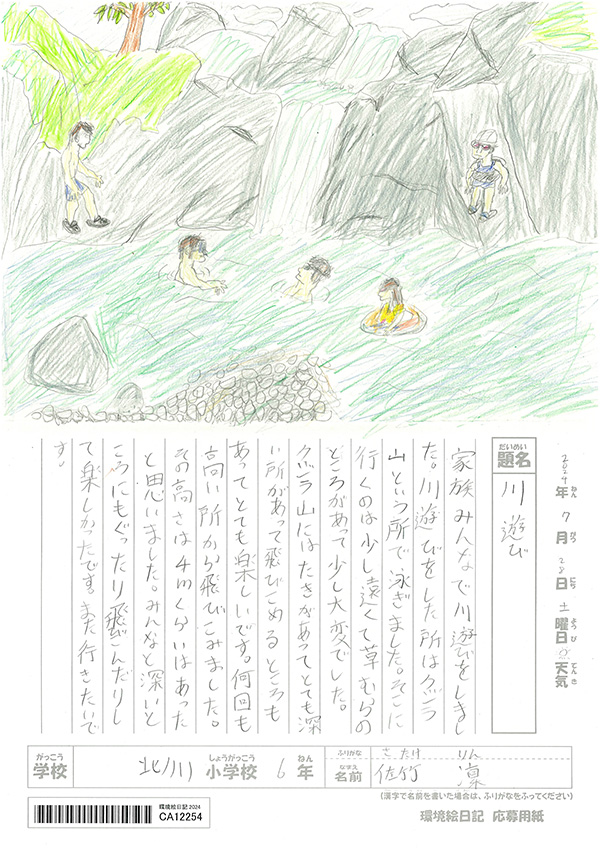 2024年 7月 28日 土曜日 天気
ねん がつ にち ようび てんき
だいめい
題名
川遊び
家族みんなで川遊びをしまし
た。川遊びをした所はクジラ
山という所で泳ぎました。そこに
行くのは少し遠くて草むらの
ところがあって少し大変でした。
クジラ山にはたきがあってとても深
い所があって飛びこめるところも
あってとても楽しいです。何回も
高い所から飛びこみました。
その高さは4mくらいはあった
と思いました。みんなと深いと
ころにもぐったり飛びこんだりし
て楽しかったです。また行きたいで
す。
がっこう しょうがっこう ねん ふりがな さたけ りん
学校 北川 小学校 6年 なまえ 名前 佐竹 凜
(漢字で名前を書いた場合は、ふりがなをふってください)
環境絵日記2024
CA12254
環境絵日記 応募用紙